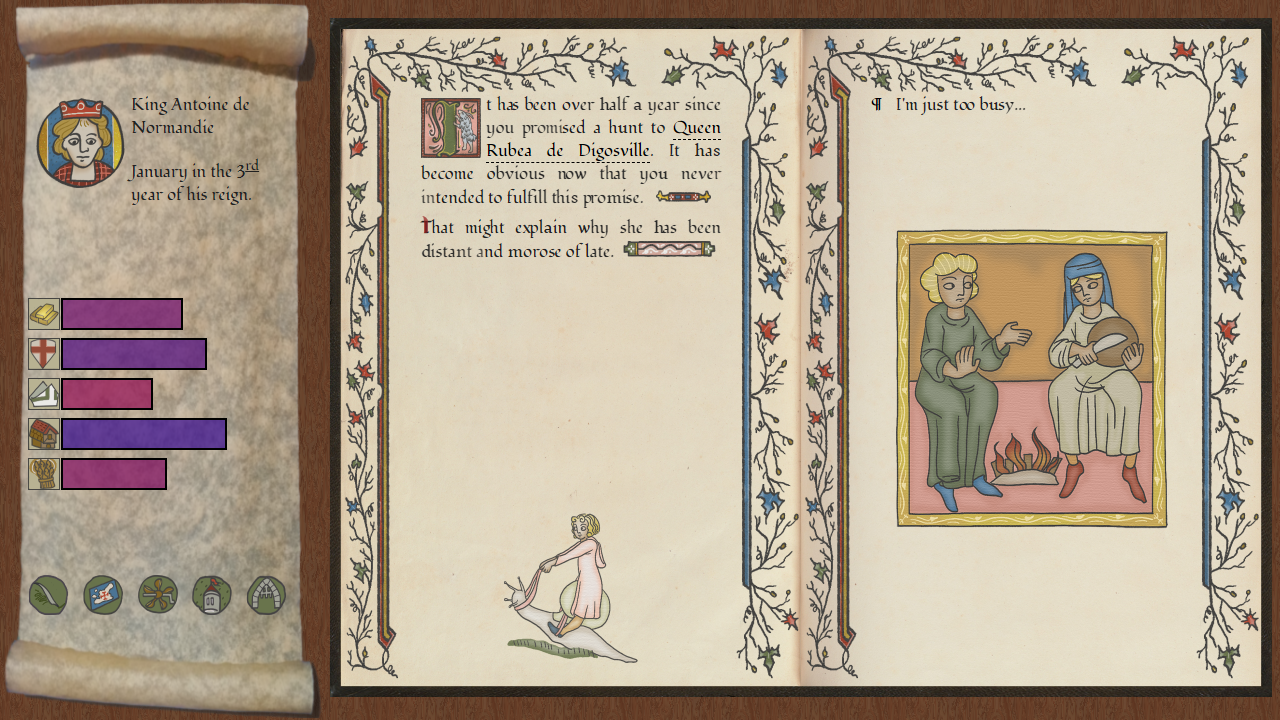 King Antoine de
Normandie
January in the 3rd
year of his reign.
It has been over half a year since
you promised a hunt to Queen
Rubea de Digosville. It has
become obvious now that you never
intended to fulfill this promise.
That might explain why she has been
distant and morose of late.
¶ I'm just too busy...